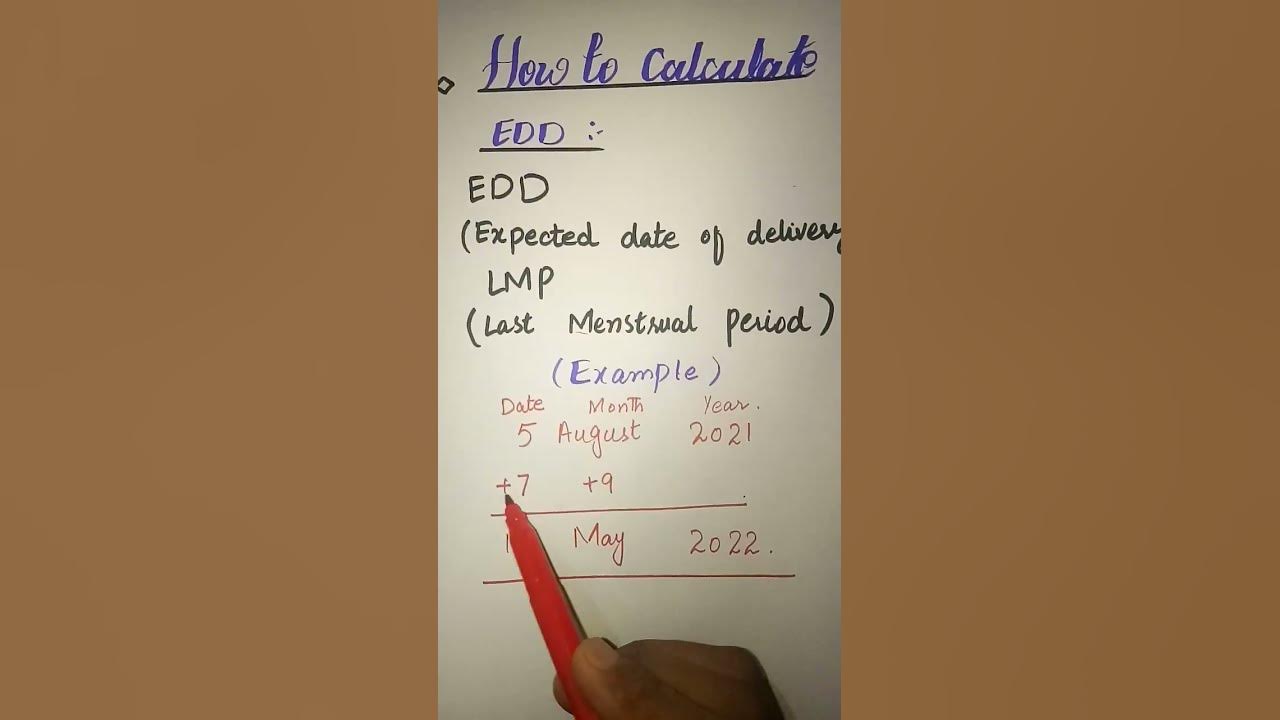 How to Calculate
EDD :-
EDD
(Expected date of delivery
LMP
(Last Menstrual period)
(Example)
Date Month Year.
5 August 2021
+7 +9
May 2022.